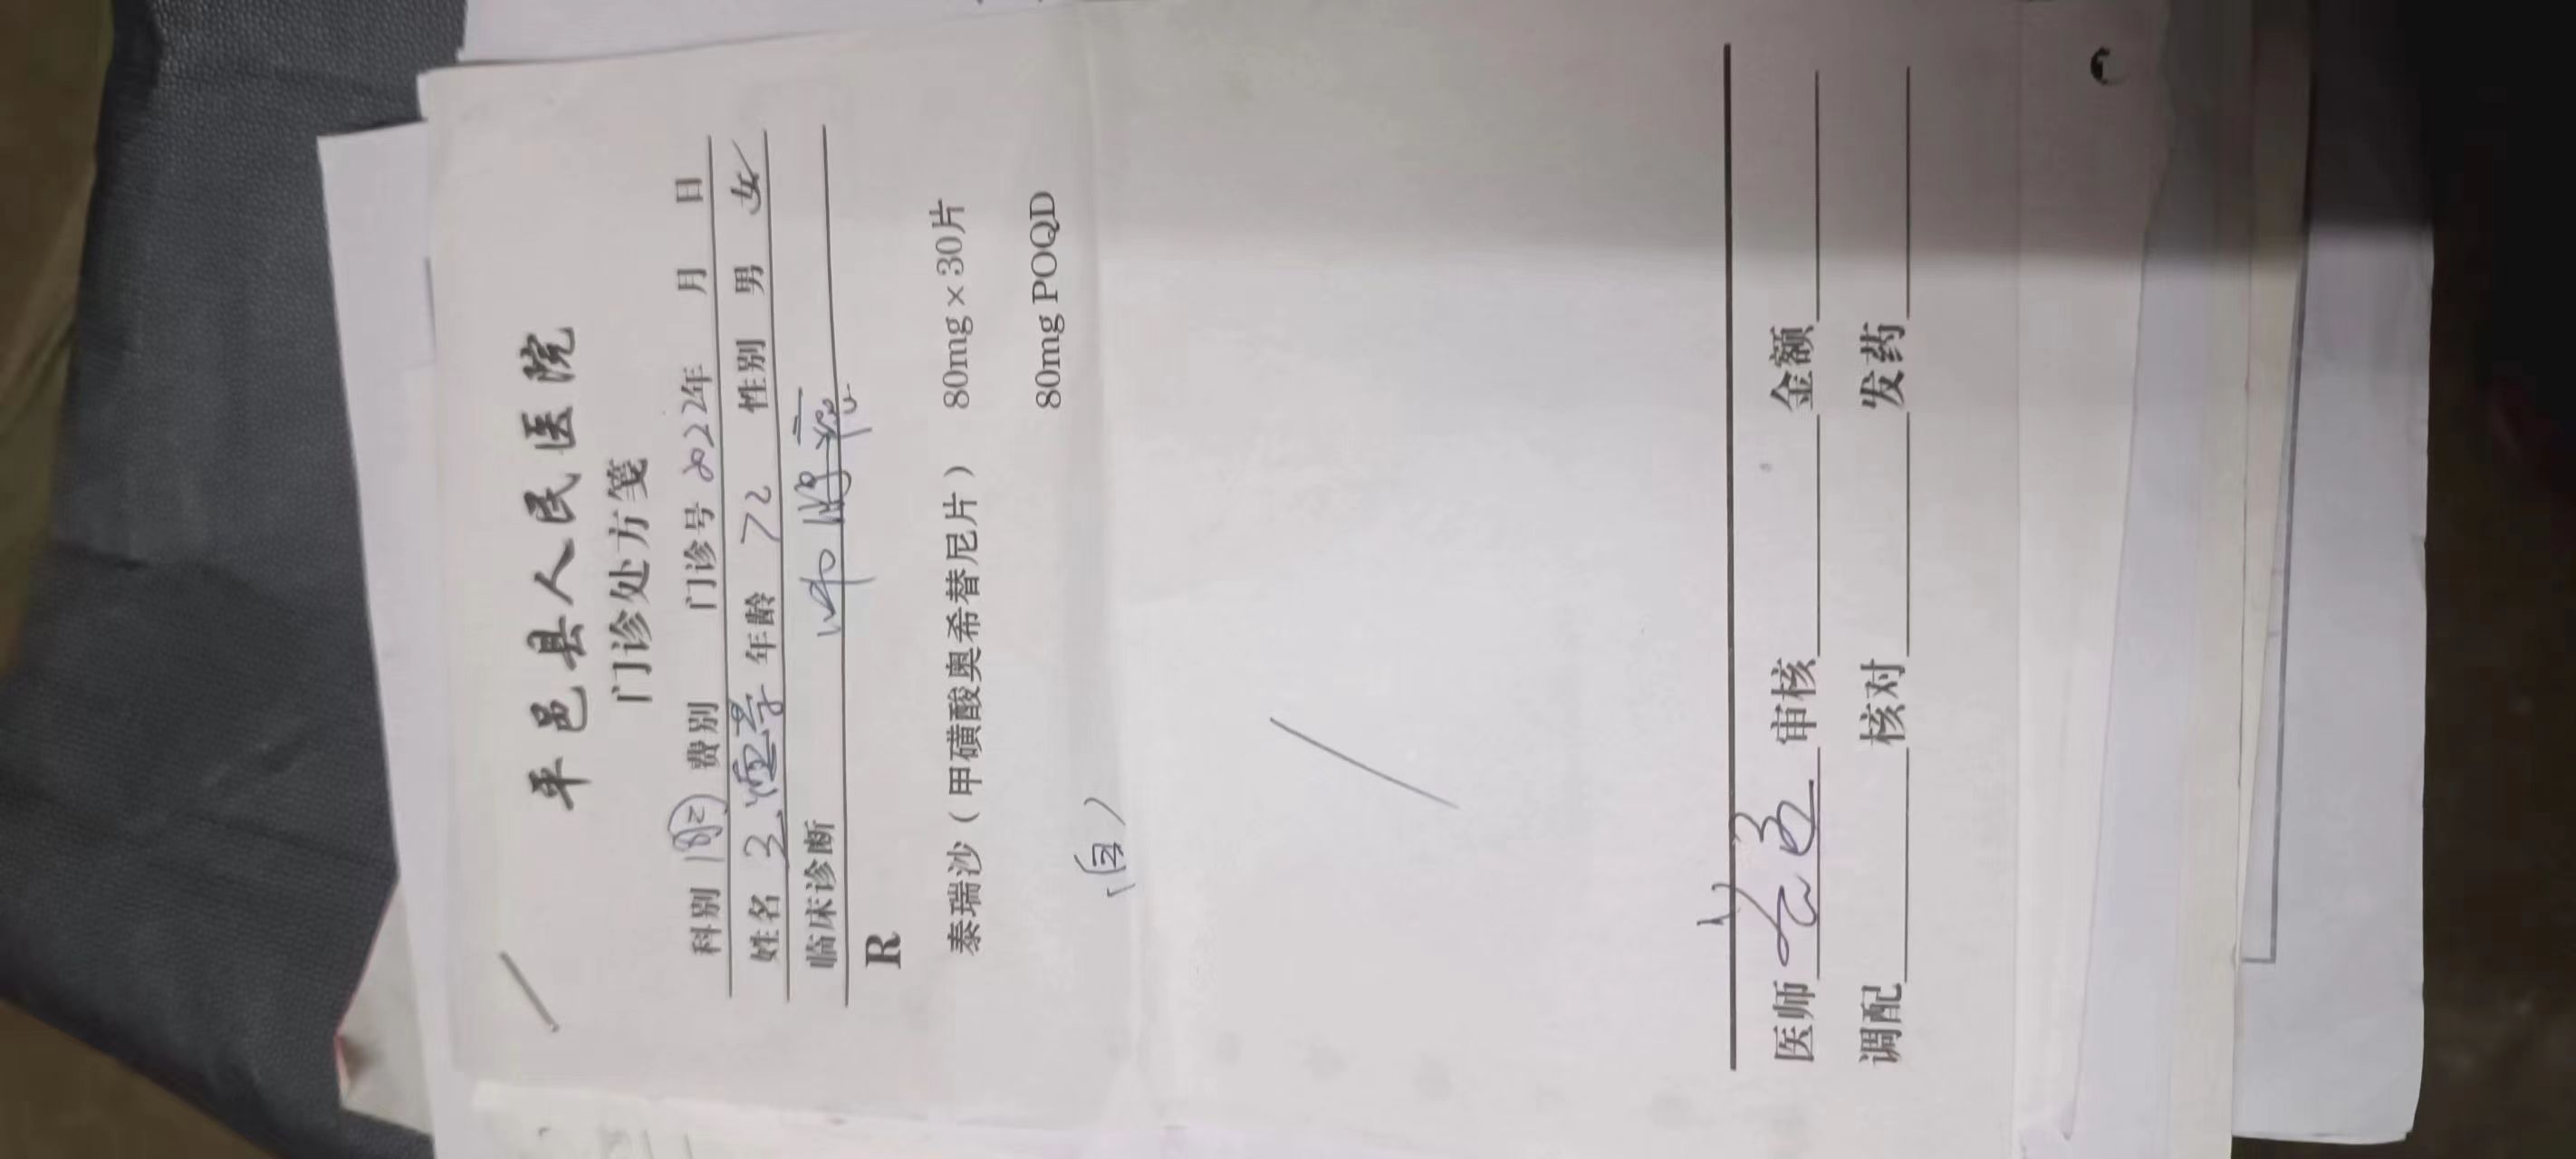 平邑县人民医院
门诊处方笺
科别 费别 门诊号 2022年 月 日
姓名 年龄 72 性别 男 女
临床诊断 肺腺癌
R
泰瑞沙（甲磺酸奥希替尼片） 80mg×30片
80mg POQD
医师 审核 金额
调配 核对 发药